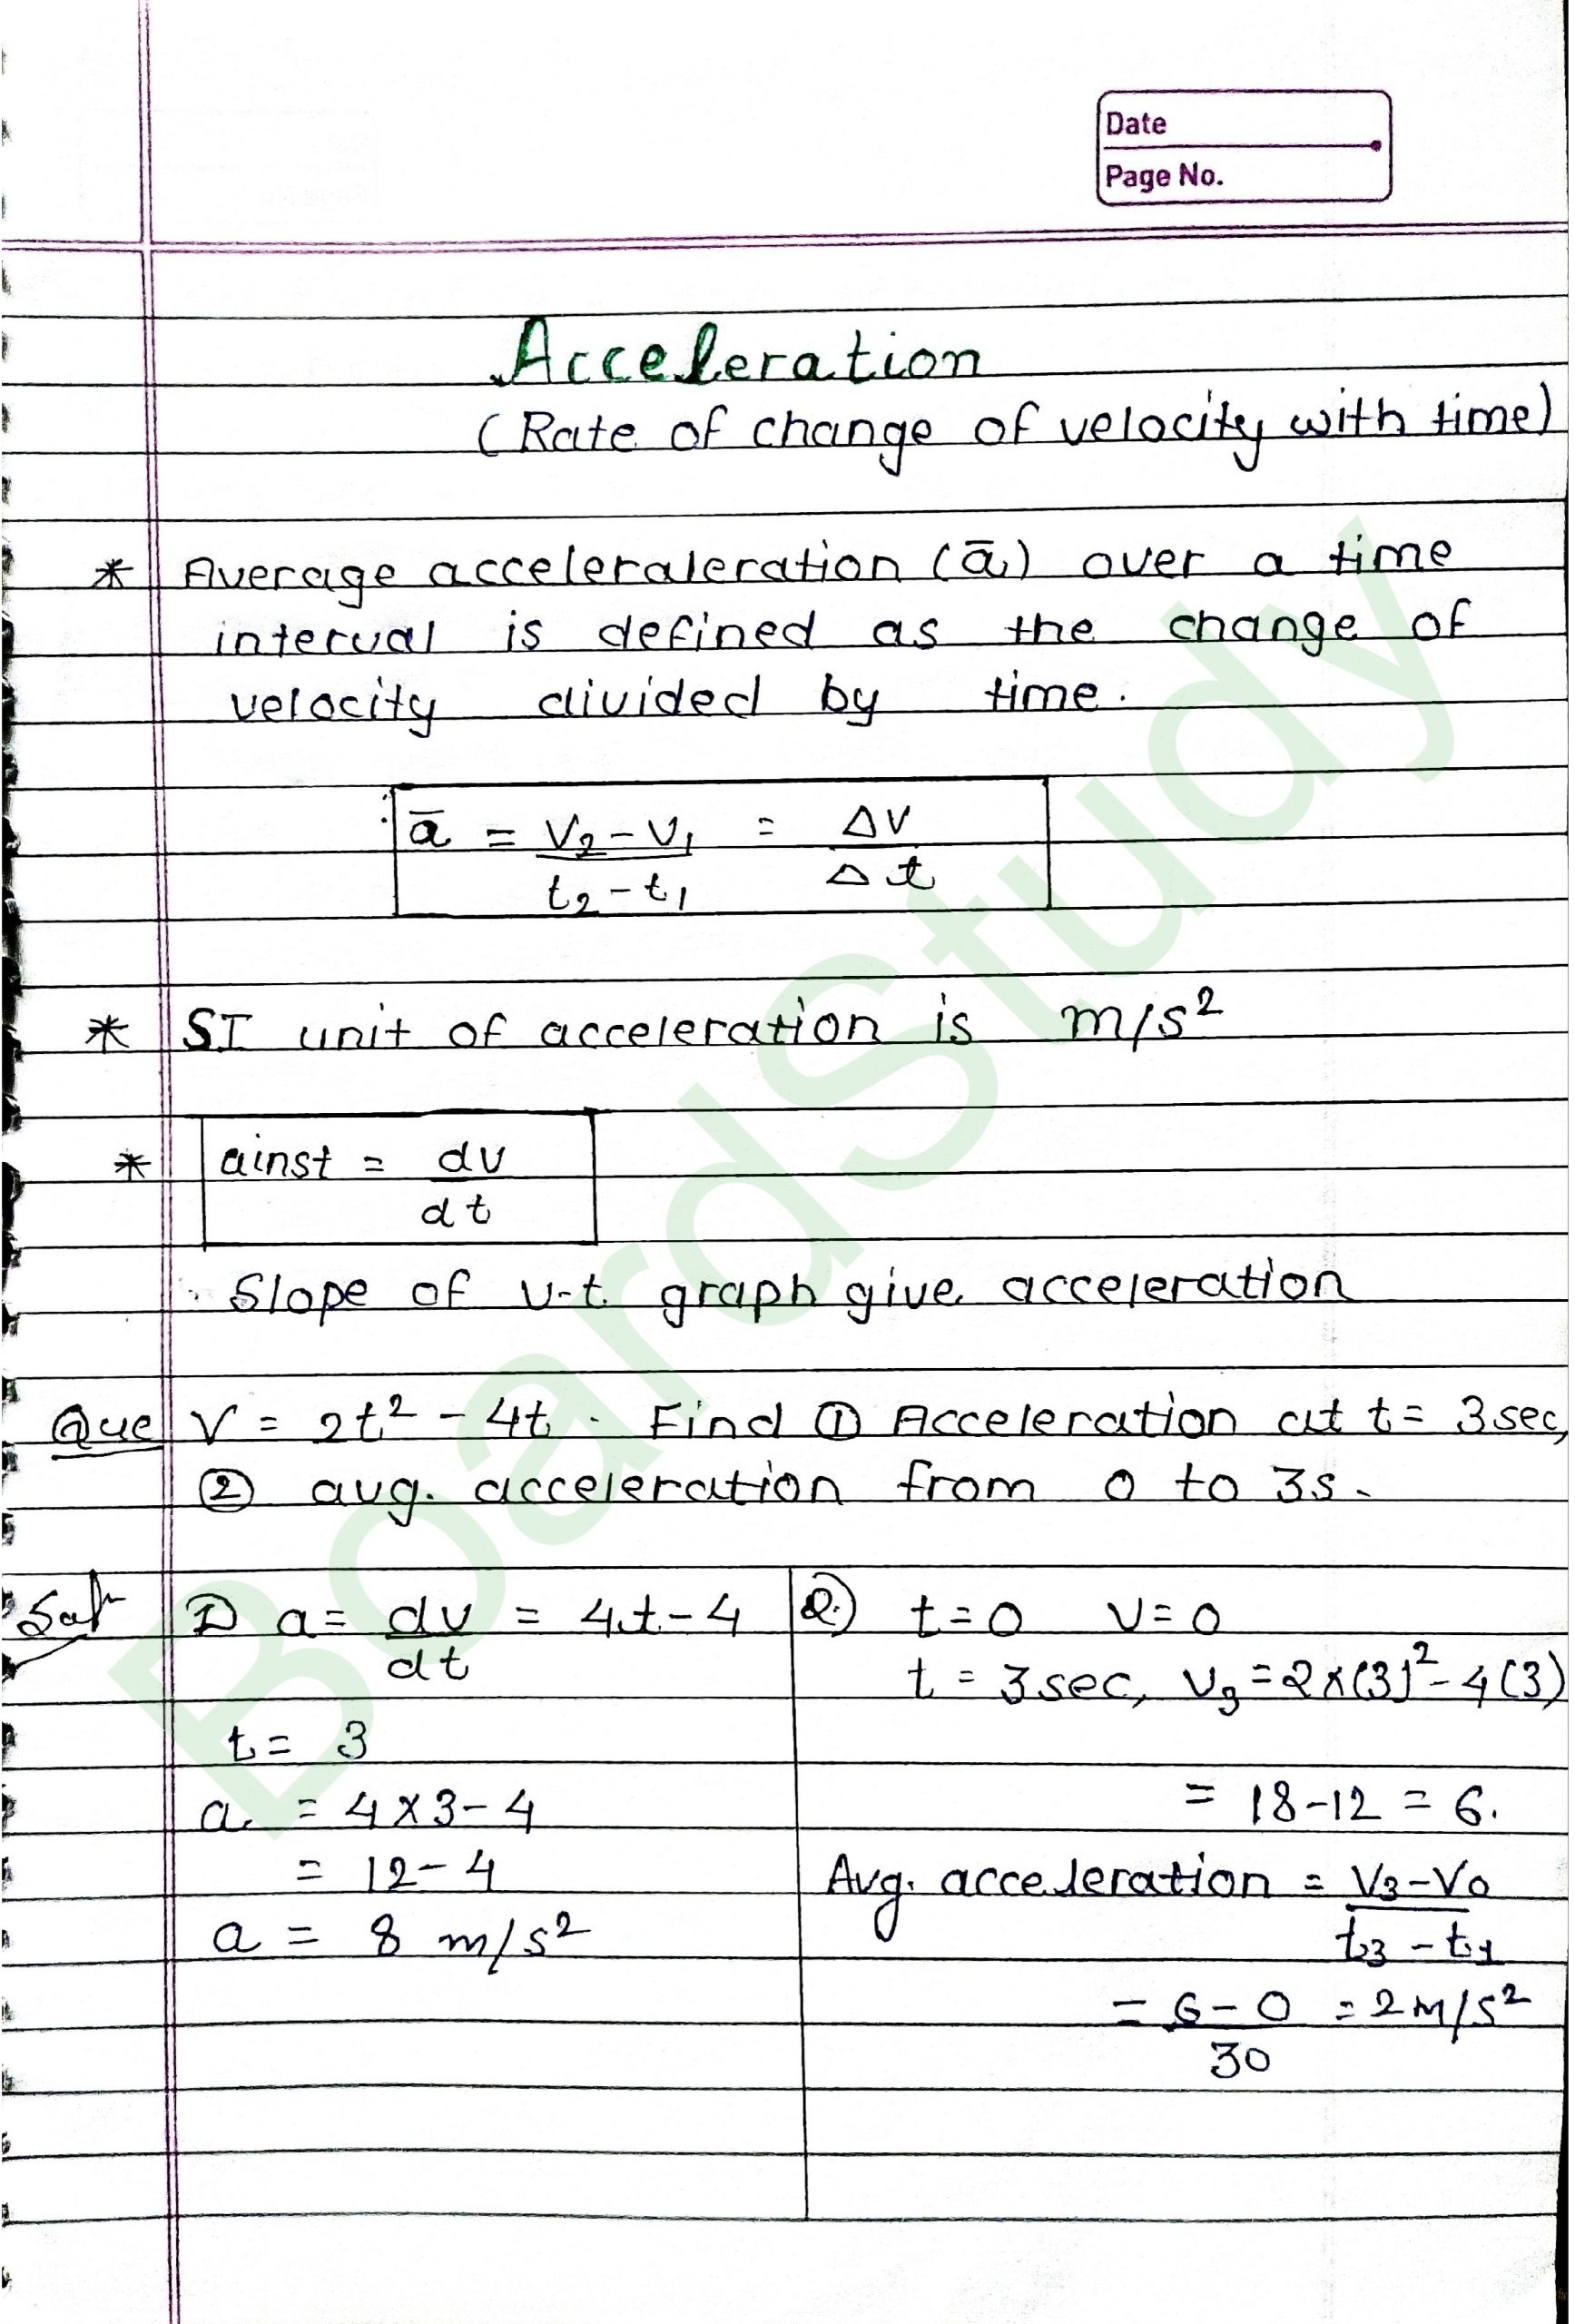 Date
Page No.
Acceleration
(Rate of change of velocity with time)
* Average acceleraleration (ā) over a time
interval is defined as the change of
velocity divided by time.
ā = V₂-V₁ = ΔV
t₂-t₁ Δt
* SI unit of acceleration is m/s²
* ainst = dv
dt
Slope of v-t graph give acceleration
Que V = 2t² - 4t. Find ① Acceleration at t = 3sec,
② avg. acceleration from 0 to 3s.
Sol① a = dv = 4t-4
dt
t = 3
a = 4×3-4
= 12-4
a = 8 m/s²
② t=0 v=0
t = 3sec, V₃ = 2×(3)²-4(3)
= 18-12 = 6.
Avg. acceleration = V₃-V₀
t₃-t₁
= 6-0 = 2m/s²
30
BoardStudy